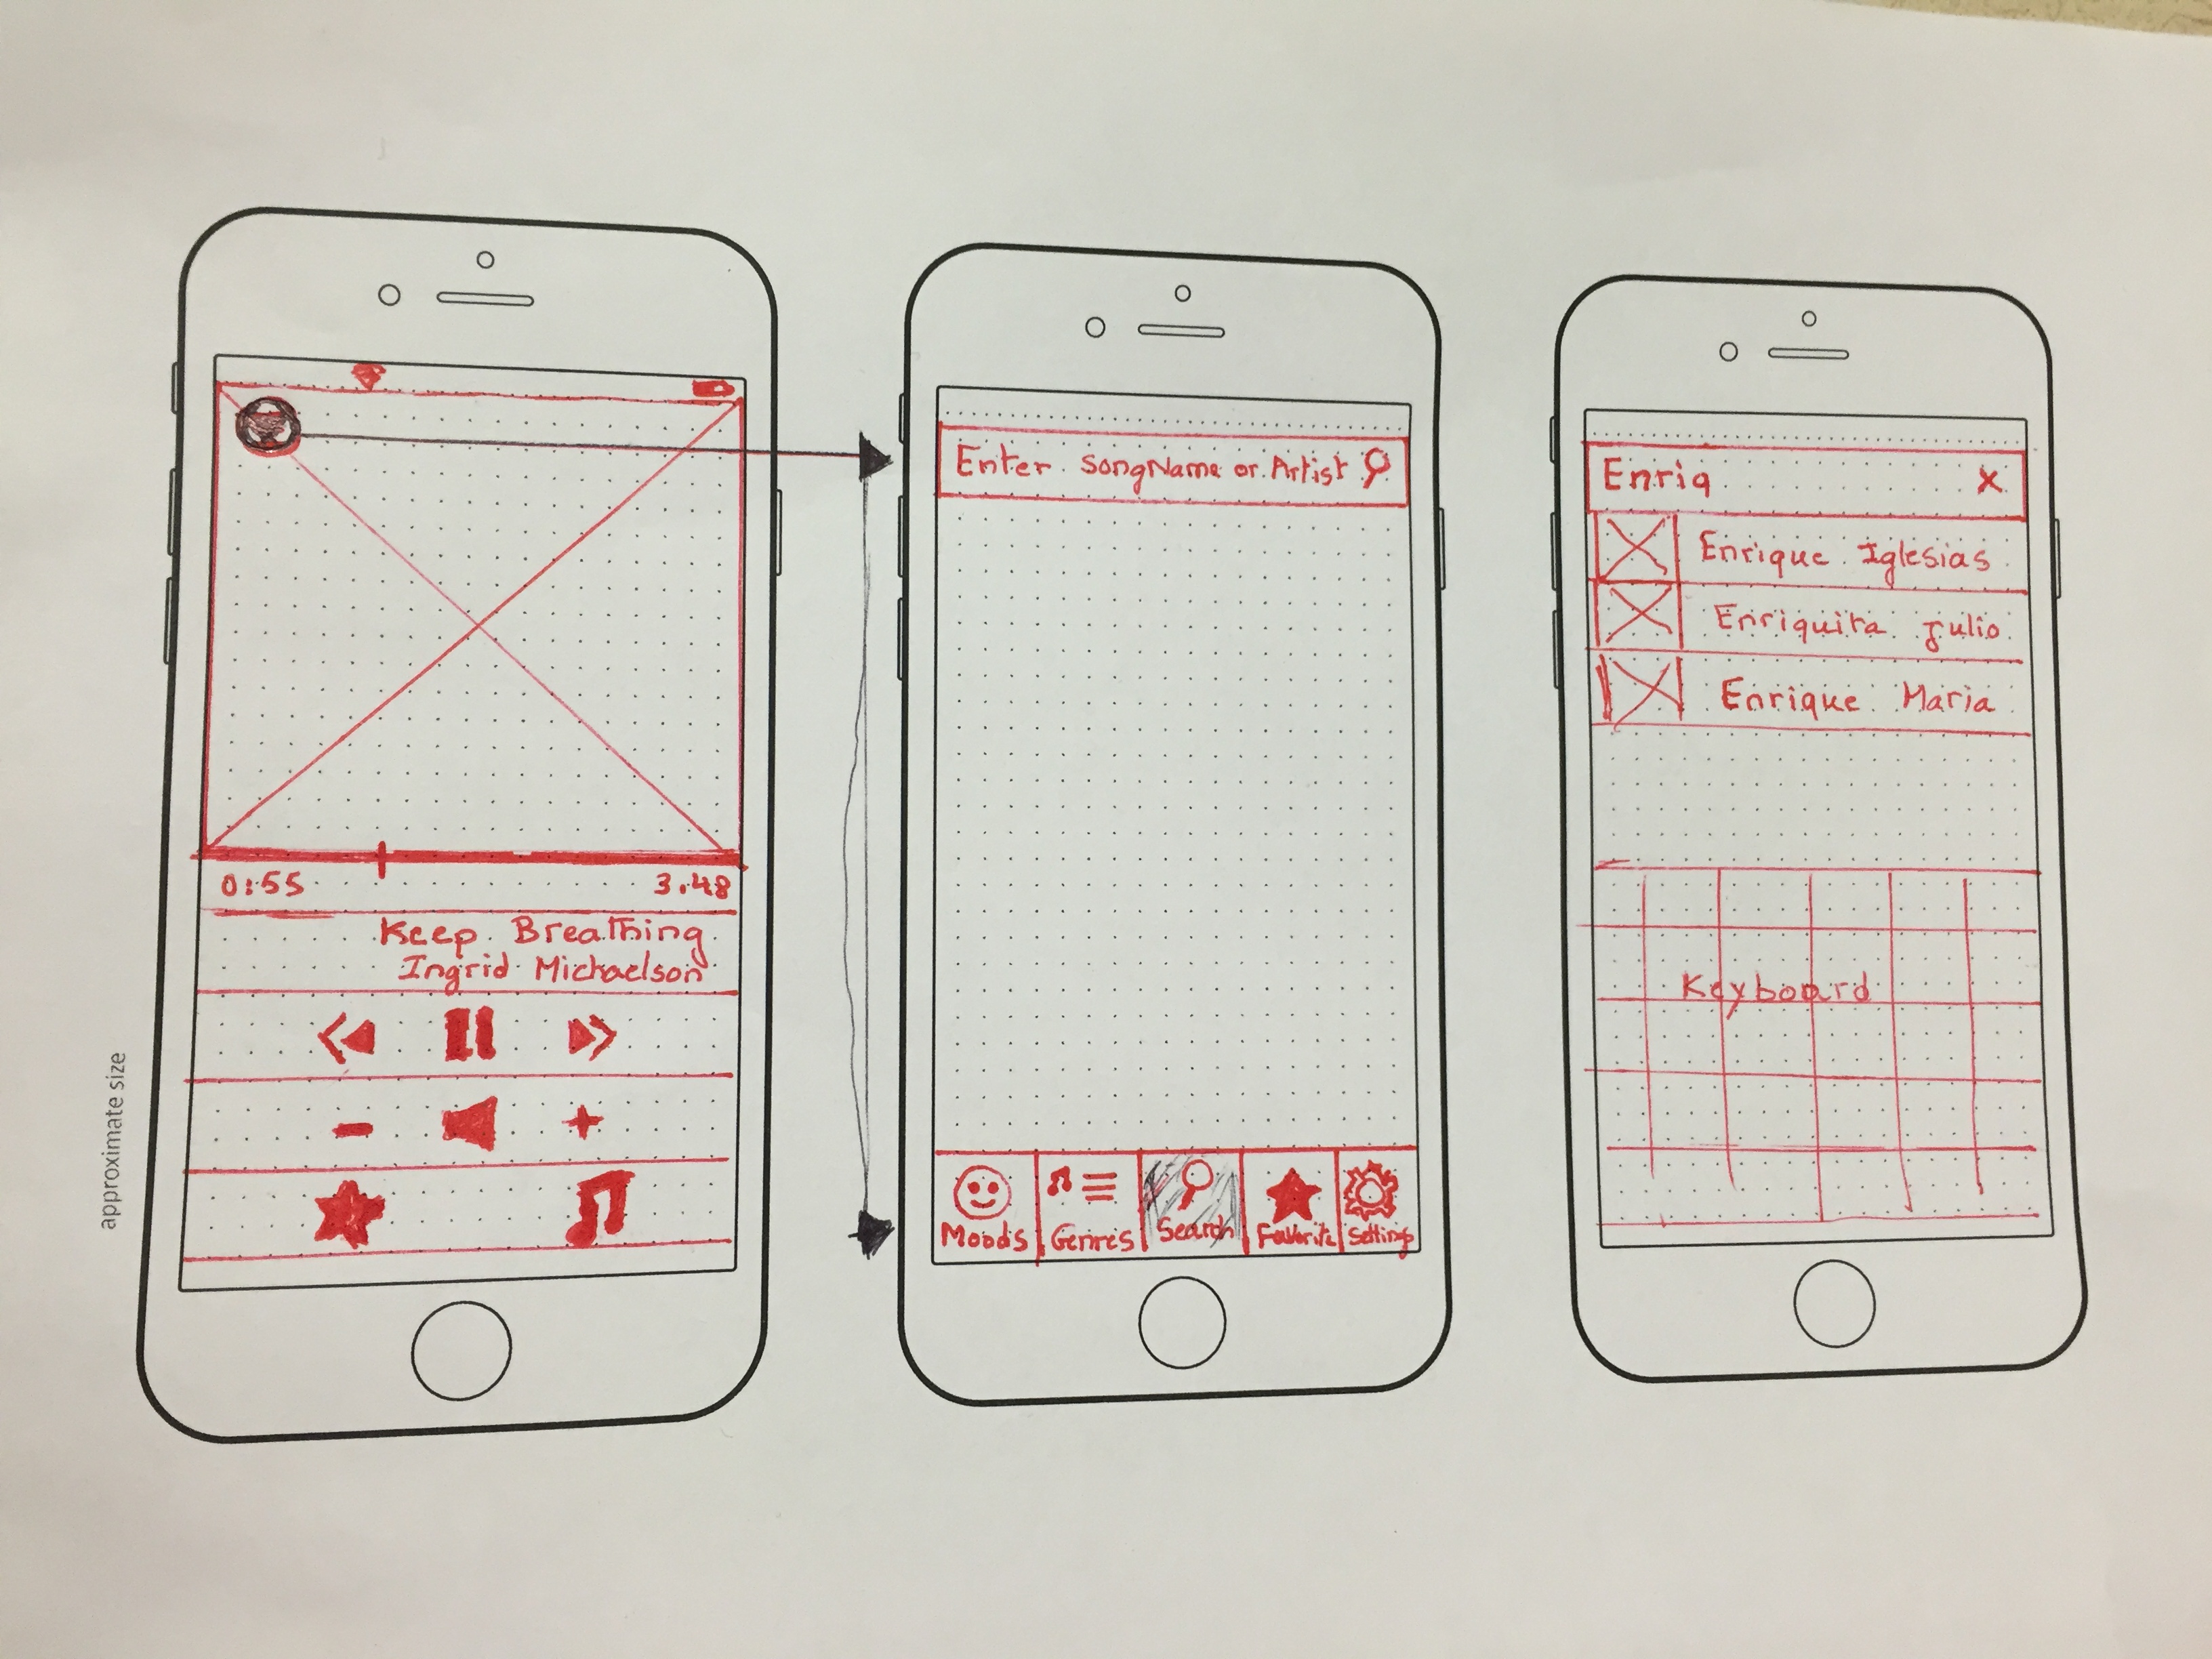 approximate size
0:55
3.48
Keep Breathing
Ingrid Michaelson
Enter SongName or Artist
Moods
Genres
Search
Favorite
Settings
Enriq
X
Enrique Iglesias
Enriquita Julio
Enrique Maria
Keyboard